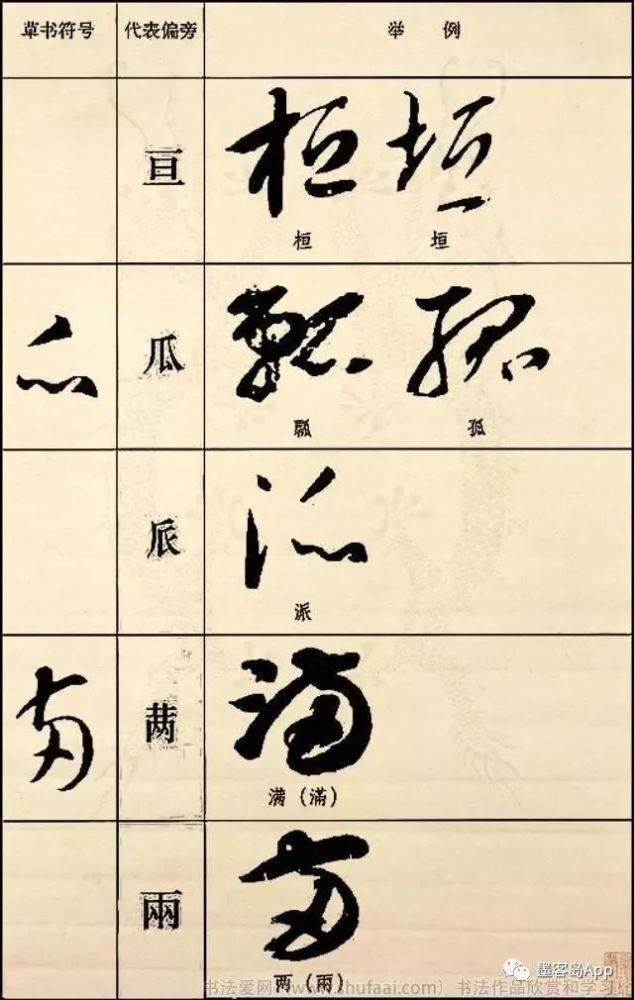 草书符号 代表偏旁 举例
亘 桓 垣
桓 垣
瓜 瓢 孤
瓢 孤
𠂢 派
派
㒼 满
满（滿）
兩 两
两（兩）
书法爱网（www.shufaai.com）书法作品欣赏和学习
墨客岛App